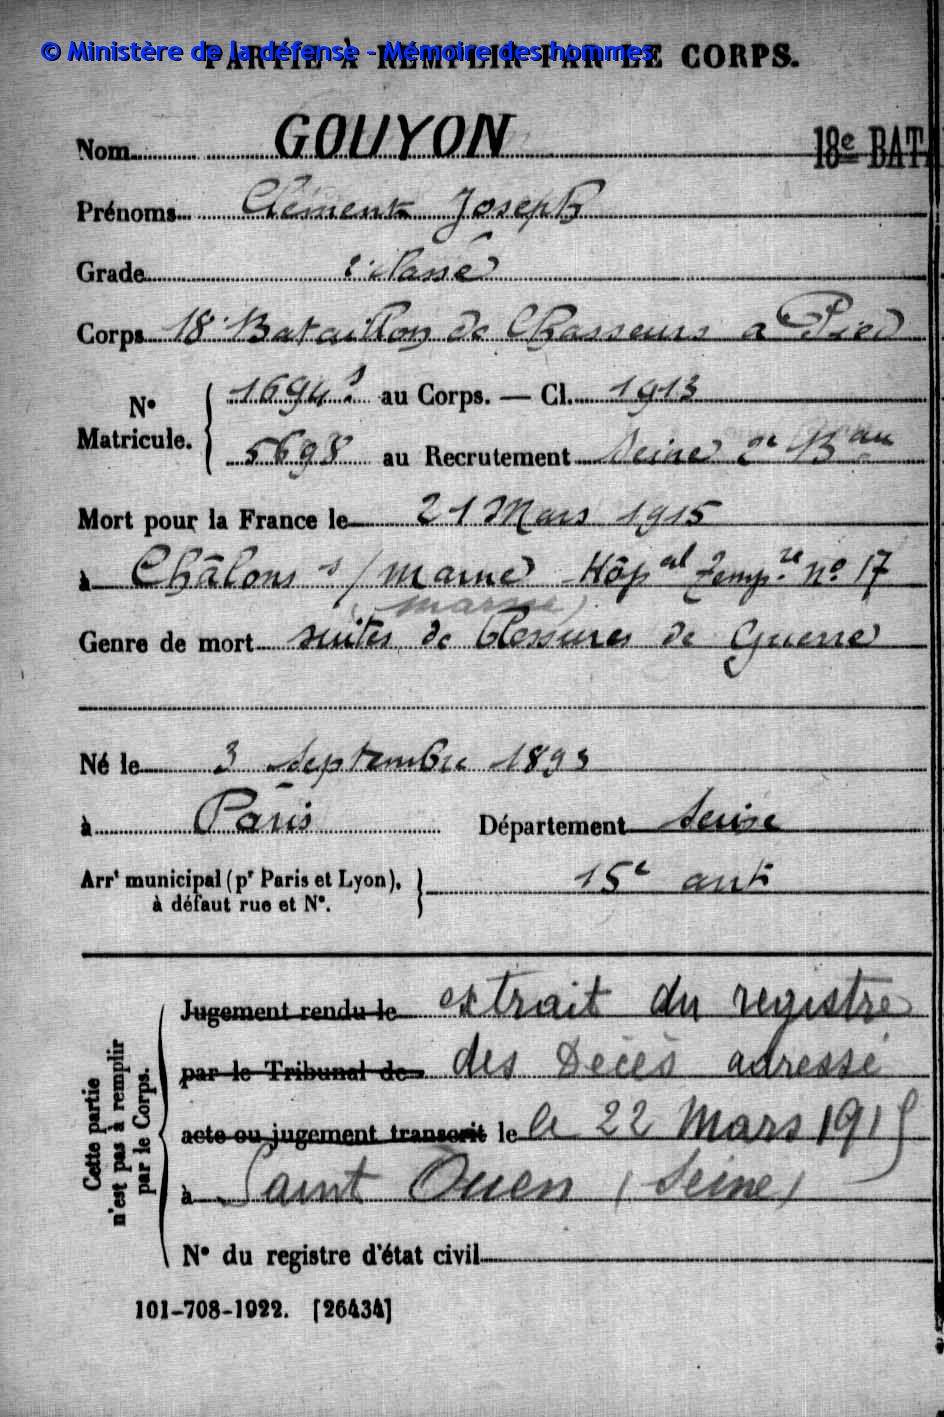 © Ministère de la défense - Mémoire des hommes
PARTIE À REMPLIR PAR LE CORPS.
Nom GOUYON
18e BAT
Prénoms Clément Joseph
Grade 2e classe
Corps 18e Bataillon de Chasseurs a Pied
N° Matricule.
1694 s au Corps. — Cl. 1913
5698 au Recrutement Seine 2e Bau
Mort pour la France le 21 Mars 1915
à Châlons s/ marne Hôpal Tempre no 17
(marne)
Genre de mort suites de blessures de Guerre
Né le 3 septembre 1893
à Paris Département Seine
Arrt municipal (pr Paris et Lyon), à défaut rue et N°.
15e arrt
Cette partie n'est pas à remplir par le Corps.
Jugement rendu le extrait du registre
par le Tribunal de des Décès adressé
acte ou jugement transcrit le le 22 Mars 1915
à Saint Ouen (Seine)
N° du registre d'état civil
101-708-1922. [26434]